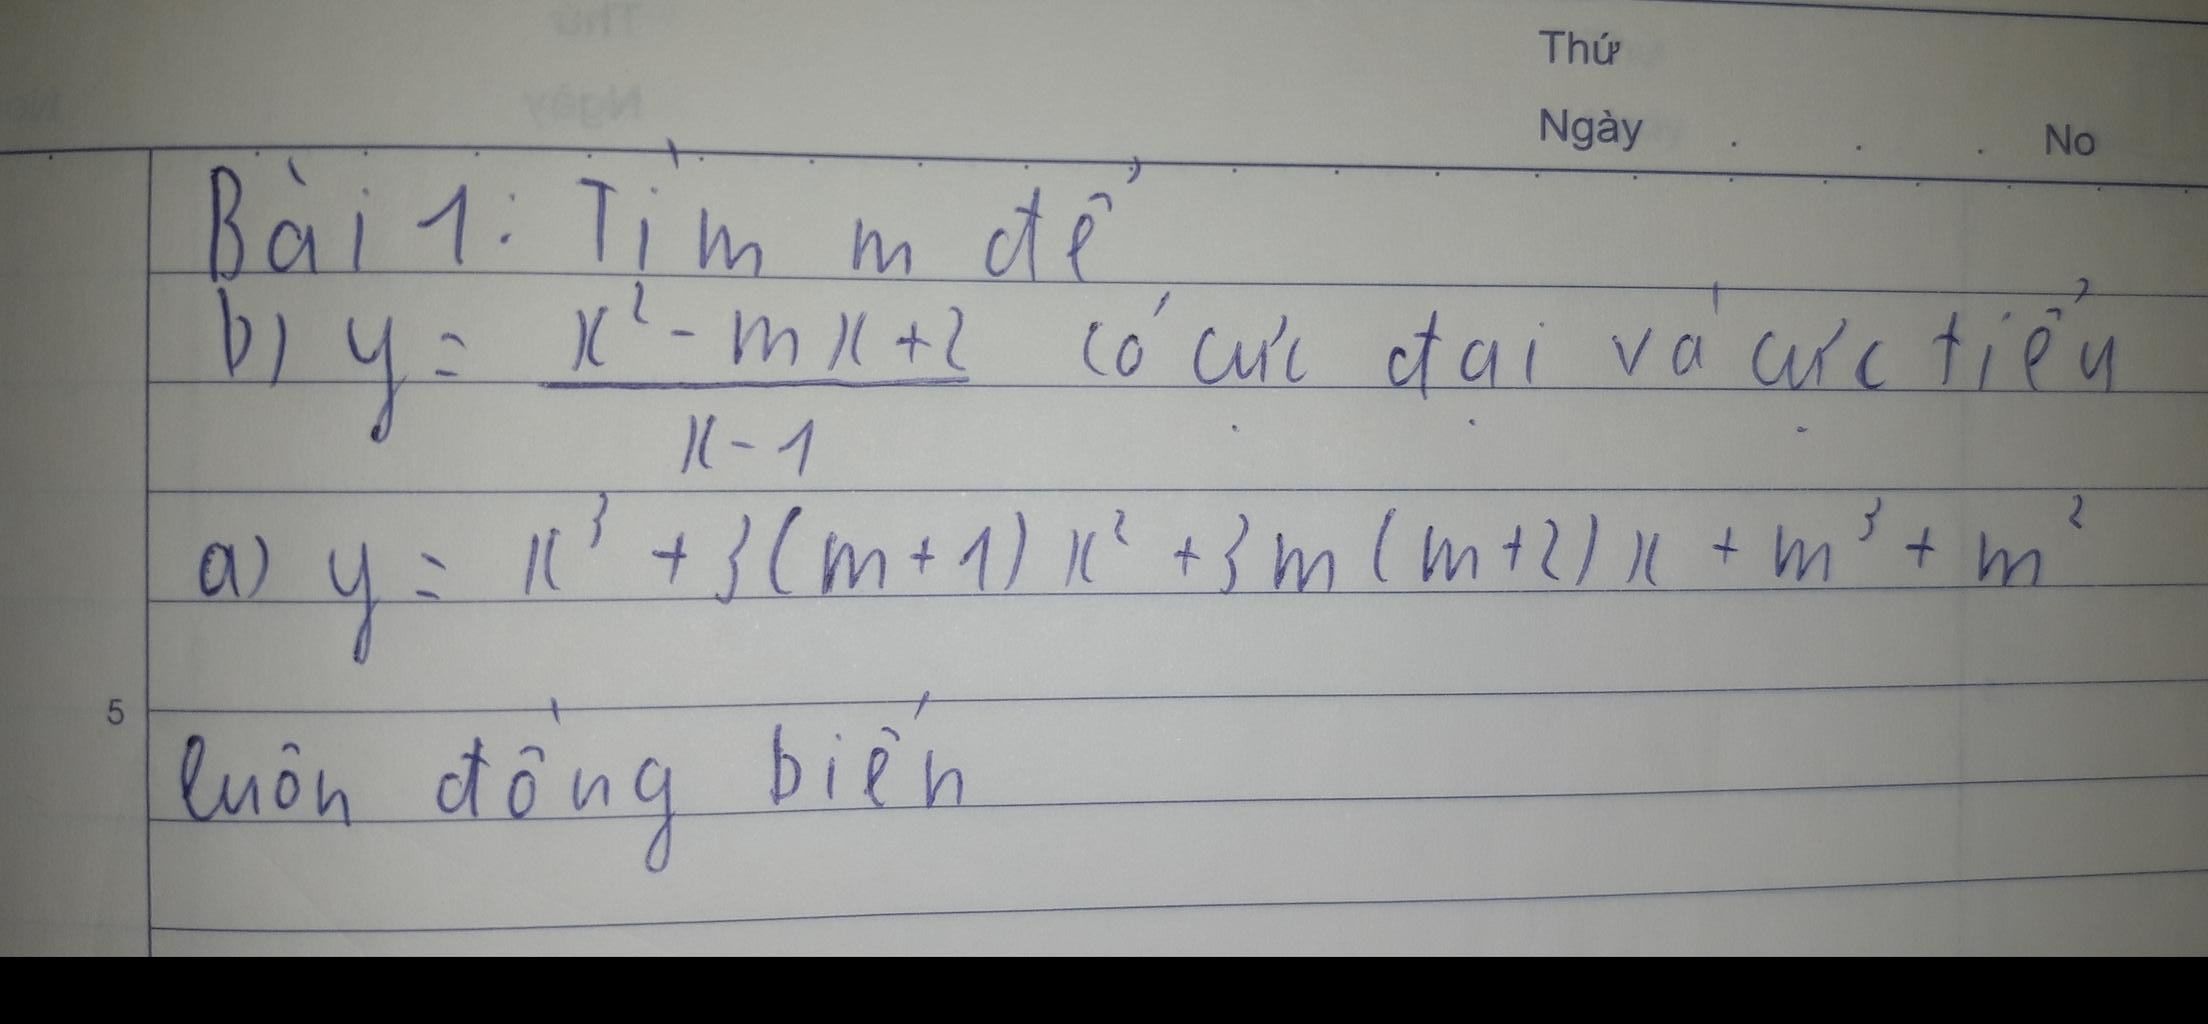 Thứ
Ngày . . . No
Bài 1: Tìm m để
b) y = (x² - mx + 2)/(x - 1) có cực đại và cực tiểu
a) y = x³ + 3(m+1)x² + 3m(m+2)x + m³ + m²
5
luôn đồng biến